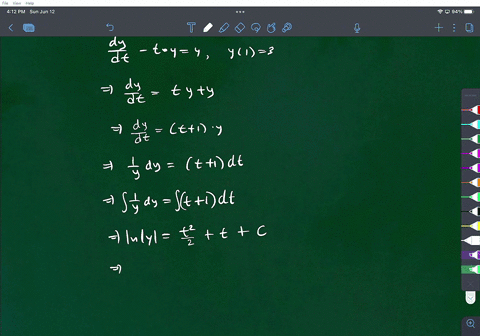 4:12 PM Sun Jun 12 94%
dy/dt - t•y = y, y(1)=3
⇒ dy/dt = ty+y
⇒ dy/dt = (t+1)·y
⇒ 1/y dy = (t+1)dt
⇒ ∫ 1/y dy = ∫(t+1)dt
⇒ ln|y| = t²/2 + t + C
⇒